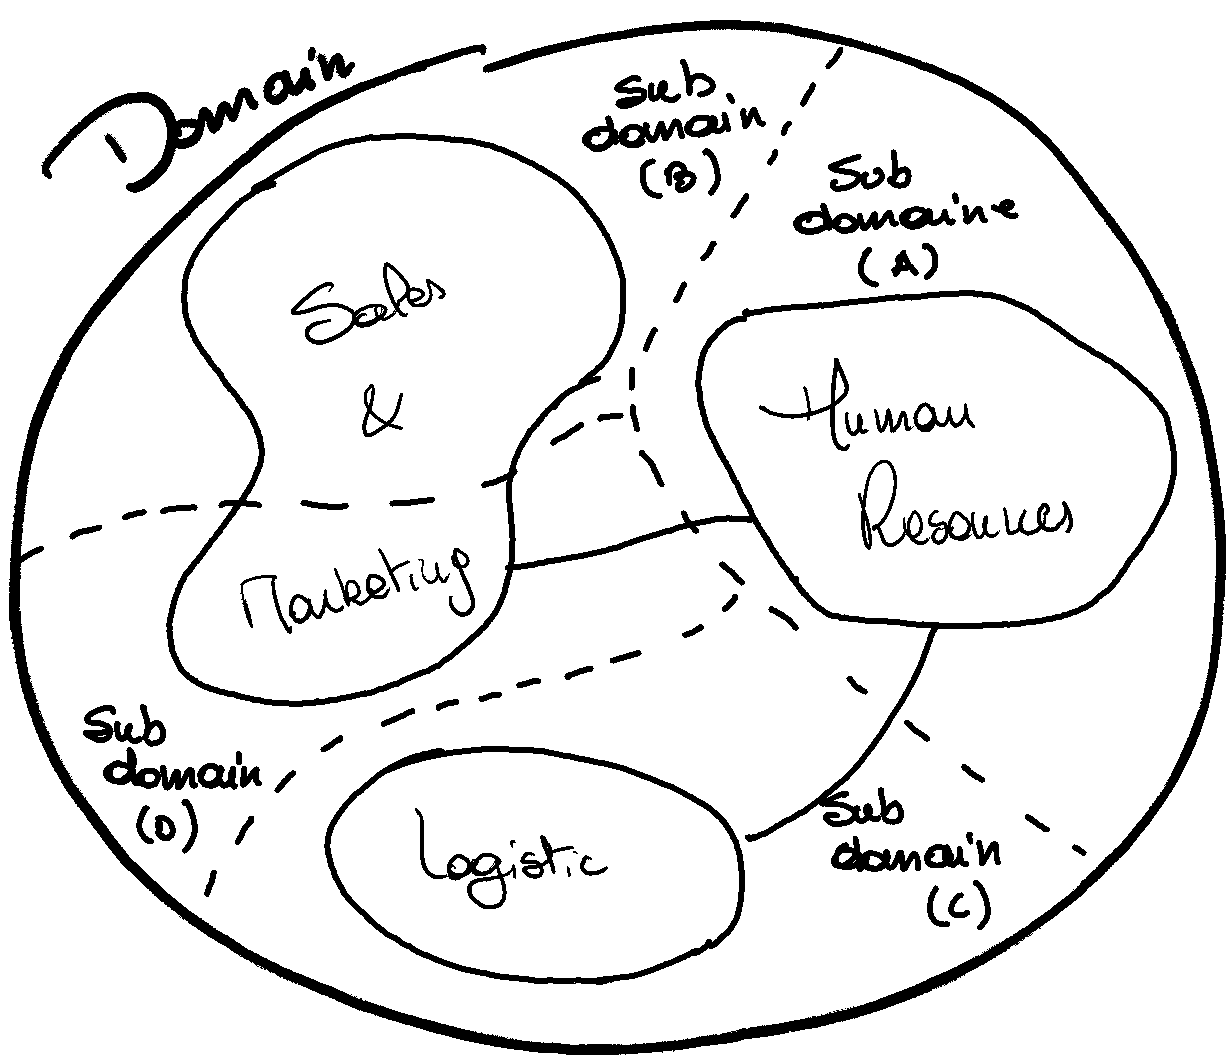 Domain
Sub
domain
(B)
Sub
domaine
(A)
Sales
&
Marketing
Human
Resources
Sub
domain
(D)
Logistic
Sub
domain
(C)